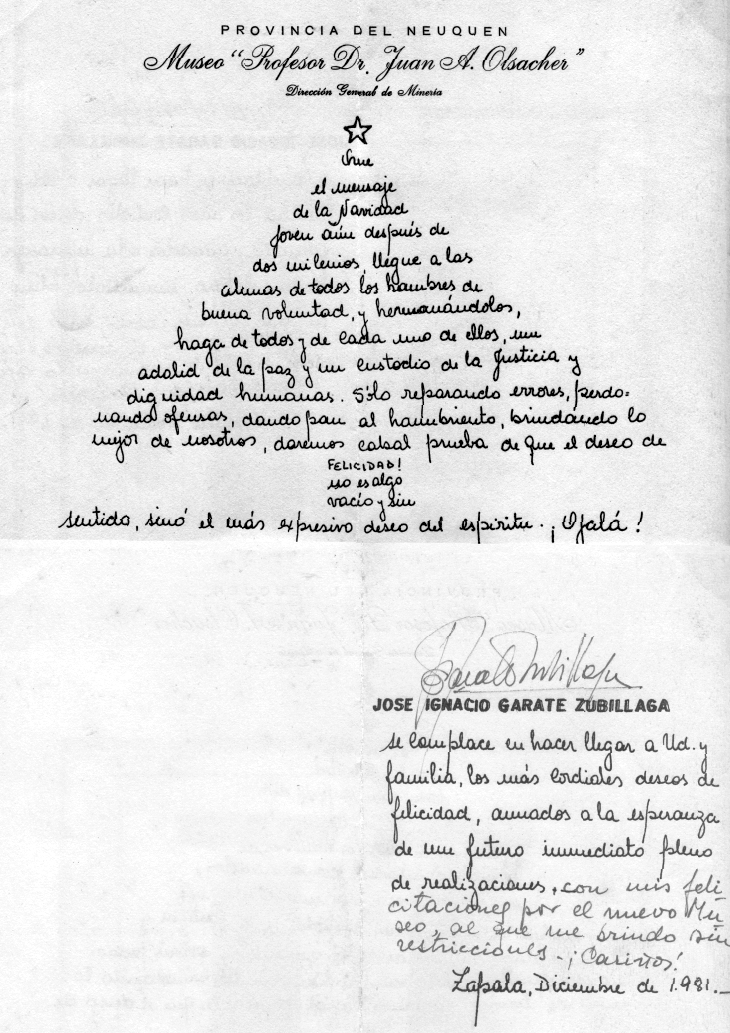 PROVINCIA DEL NEUQUEN
Museo "Profesor Dr. Juan A. Olsacher"
Dirección General de Minería
Que
el mensaje
de la Navidad
joven aún después de
dos milenios, llegue a las
almas de todos los hombres de
buena voluntad, y hermanándolos,
haga de todos y de cada uno de ellos, un
adalid de la paz y un custodio de la Justicia y
dignidad humanas. Sólo reparando errores, perdo=
nando ofensas, dando pan al hambriento, brindando lo
mejor de nosotros, daremos cabal prueba de que el deseo de
FELICIDAD!
no es algo
vacío y sin
sentido, sinó el más expresivo deseo del espíritu. ¡Ojalá!
Garate Zubillaga
JOSE IGNACIO GARATE ZUBILLAGA
se complace en hacer llegar a Ud. y
familia, los más cordiales deseos de
felicidad, aunados a la esperanza
de un futuro inmediato pleno
de realizaciones, con mis feli
citaciones por el nuevo Mu
seo, al que me brindo sin
restricciones - ¡Cariños!
Zapala, Diciembre de 1.981.-